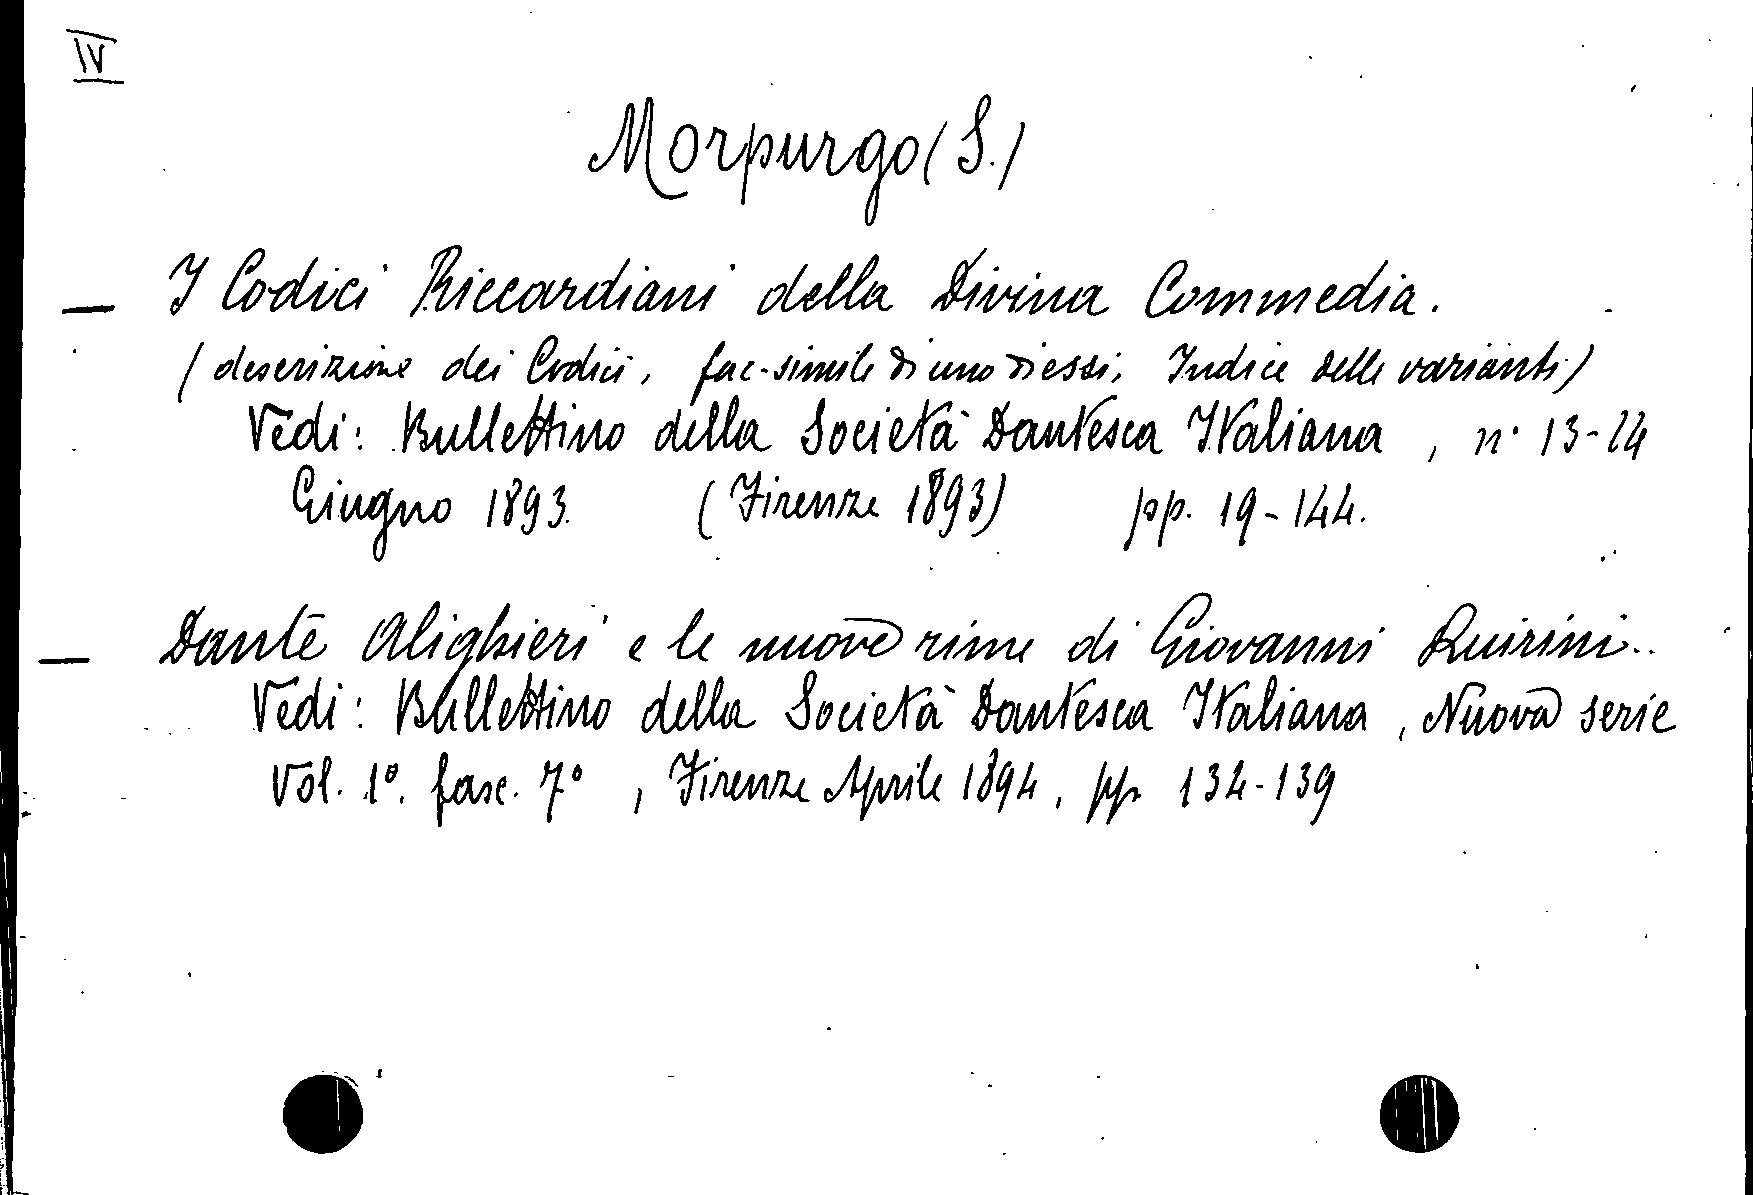 IV
Morpurgo (S.)
— I Codici Riccardiani della Divina Commedia.
(descrizione dei Codici, fac-simile di uno di essi, Indice delle varianti)
Vedi: Bullettino della Società Dantesca Italiana, n. 13-14
Giugno 1893. (Firenze 1893) pp. 19-144.
— Dante Alighieri e le nuove rime di Giovanni Quirini.
Vedi: Bullettino della Società Dantesca Italiana, Nuova serie
Vol. 1º. fasc. 7º, Firenze Aprile 1894, pp. 134-139